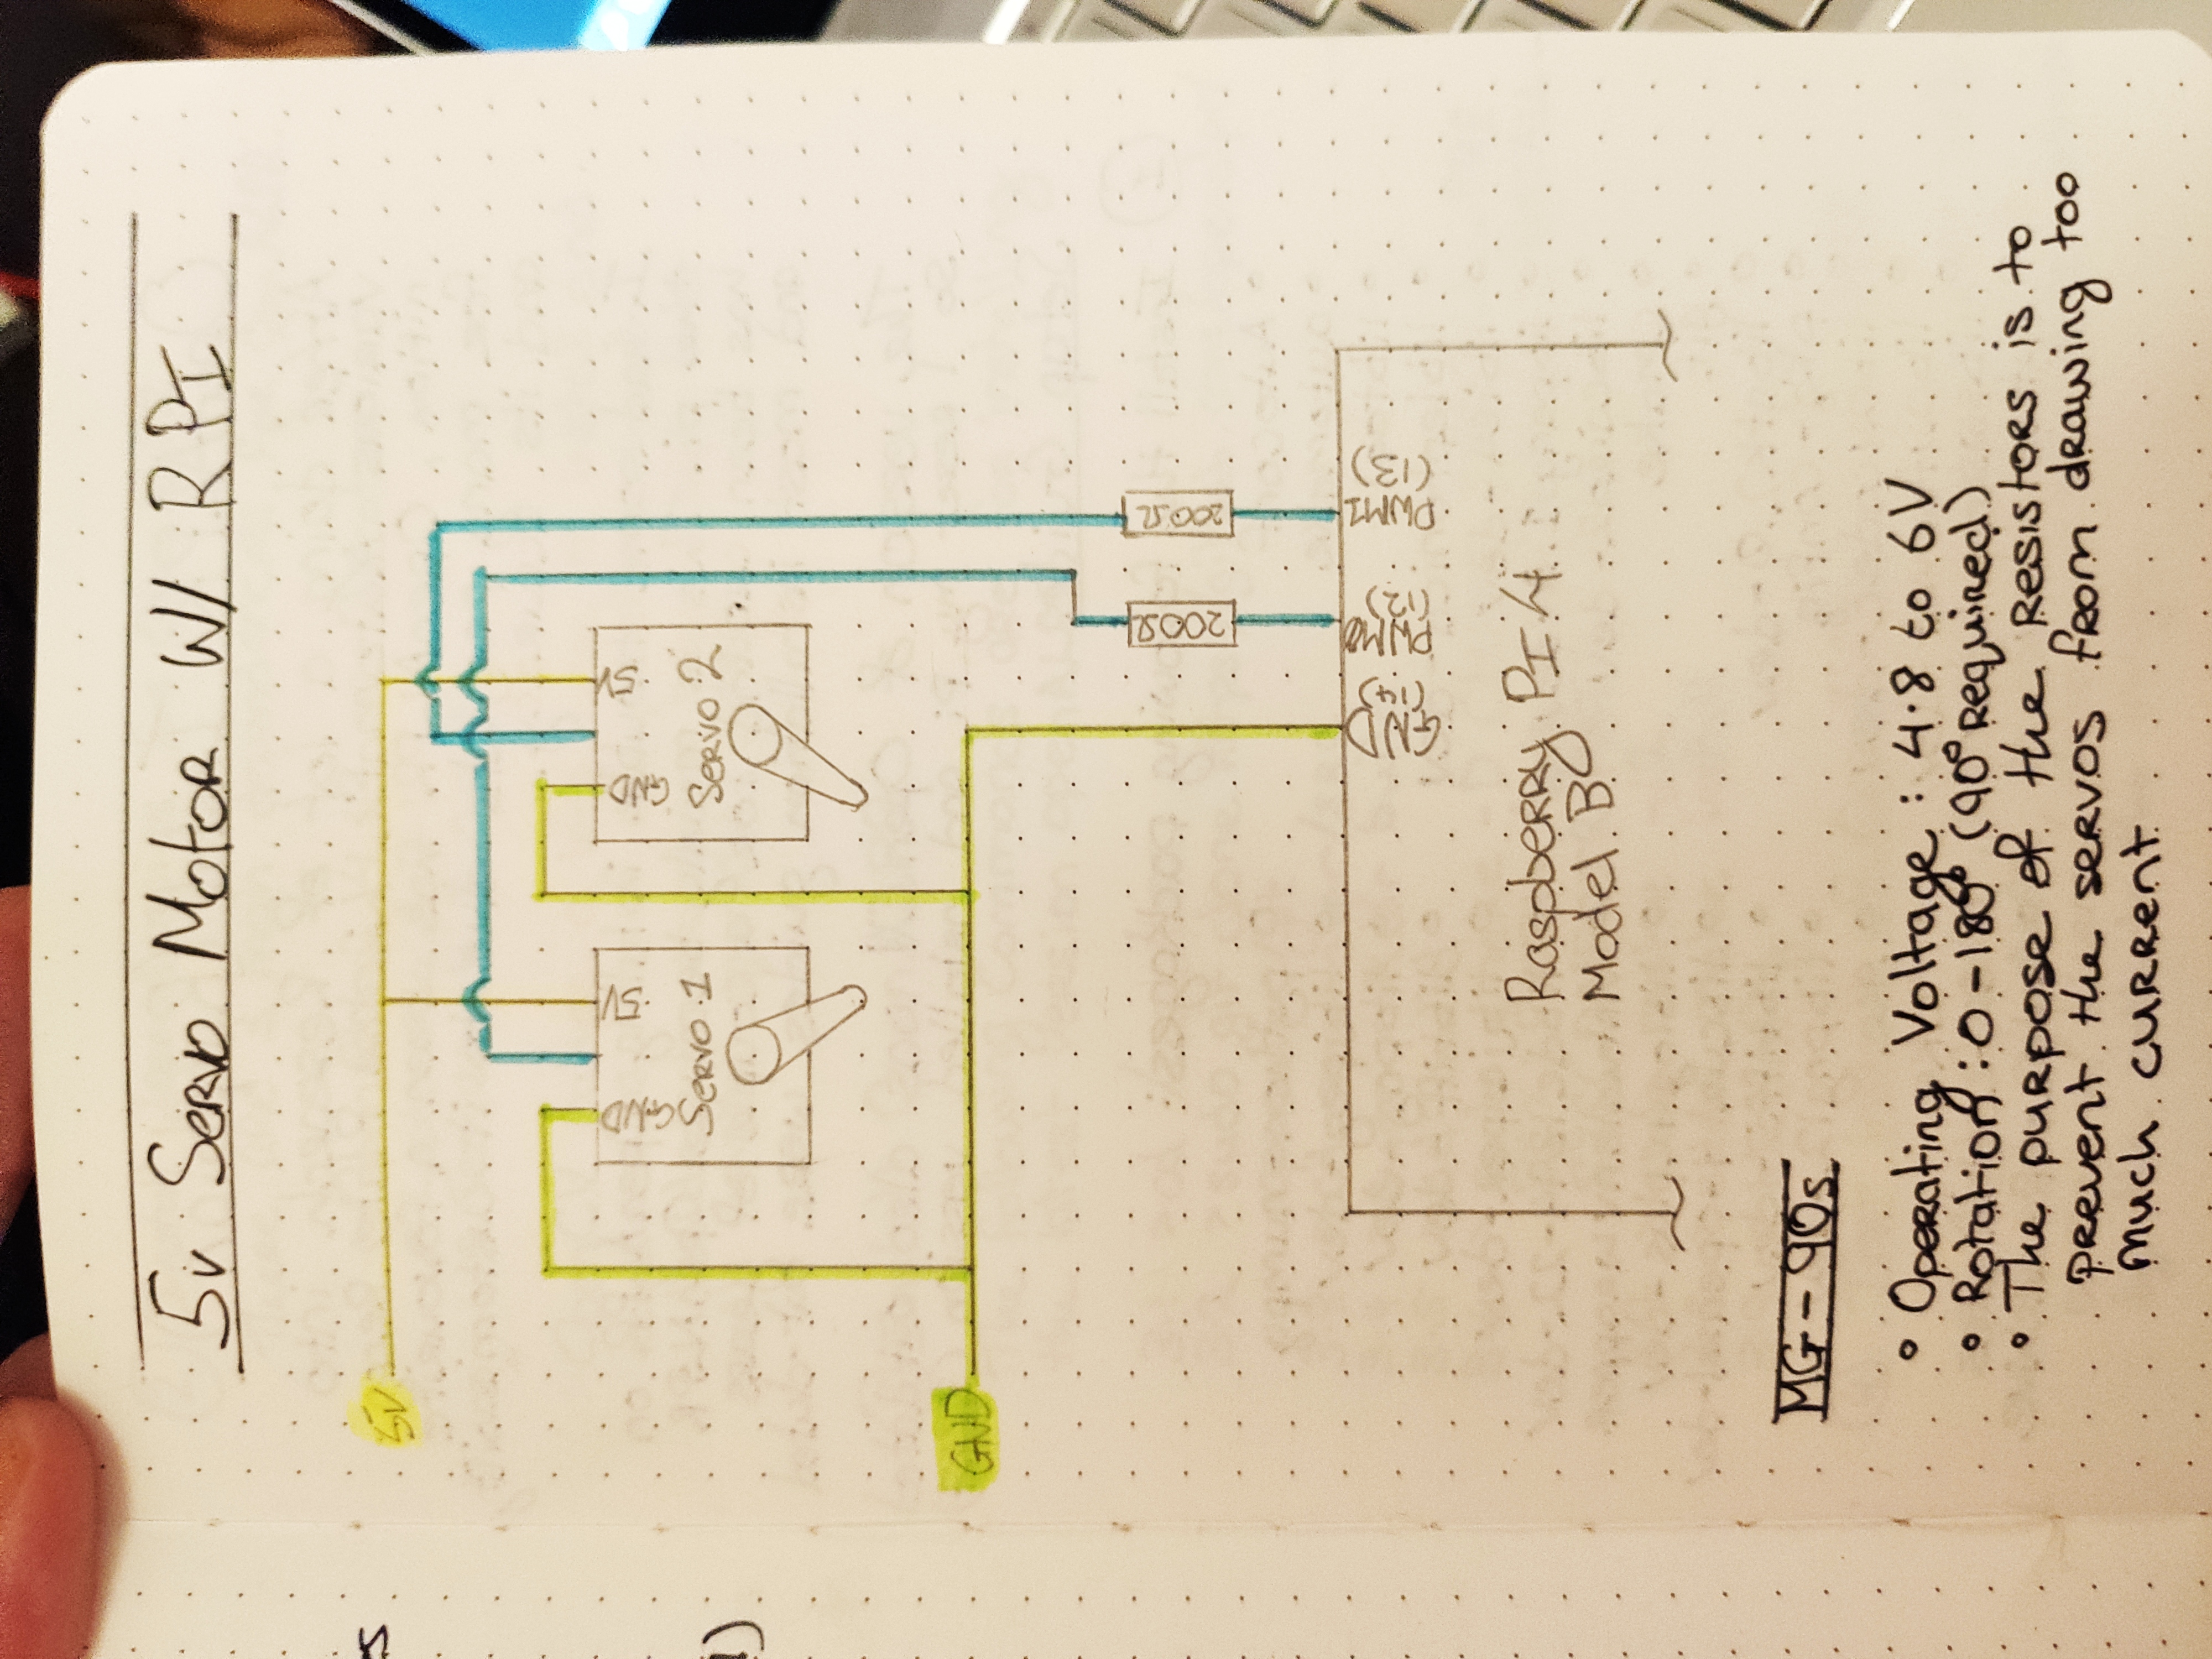 5v Servo Motor W/ R PI
5V
GND 5V
Servo 1
GND 5V
Servo 2
GND
200Ω 200Ω
GND (14) PWM0 (12) PWM1 (13)
Raspberry PI 4
Model B
MG-90s
• Operating Voltage : 4.8 to 6V
• Rotation : 0-180° (90° required)
• The purpose of the resistors is to
prevent the servos from drawing too
much current